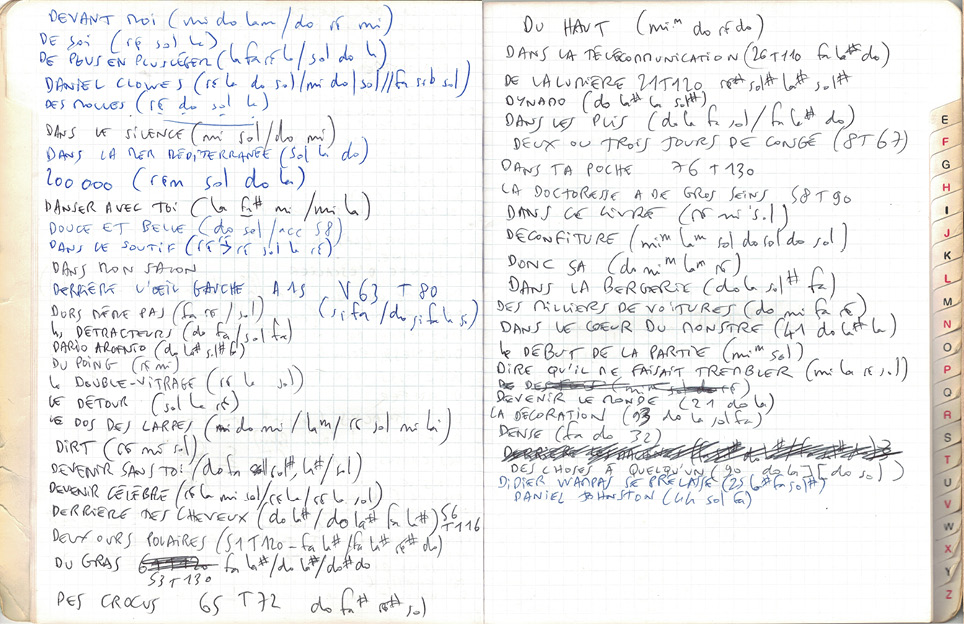 DEVANT MOI (mi do lam / do ré mi)
DE SOI (ré sol la)
DE PLUS EN PLUS LÉGER (la fa ré la / sol do la)
DANIEL CLOWES (ré la do sol / mi do / sol // fa sib sol)
DES MOLLES (ré do sol la)
DANS LE SILENCE (mi sol / do mi)
DANS LA MER MÉDITERRANÉE (sol la do)
200 000 (rém sol do la)
DANSER AVEC TOI (la fa# mi / mi la)
DOUCE ET BELLE (do sol / acc 58)
DANS LE SOUTIF (ré sol la ré)
DANS MON SALON
DERRIÈRE L'OEIL GAUCHE A 15 V 63 T 80
DURS MÊME PAS (fa ré / sol) (si fa / do si fa la si)
les DÉTRACTEURS (do fa / sol fa)
DARIO ARGENTO (do la# sol# la)
DU POING (ré mi)
le DOUBLE-VITRAGE (ré la sol)
LE DÉTOUR (sol la ré)
LE DOS DES CARPES (mi do mi / lam / ré sol mi la)
DIRT (ré mi sol)
DEVENIR SANS TOI (do fa sol# la# / sol)
DEVENIR CÉLÈBRE (ré la mi sol / ré la / ré la sol)
DERRIÈRE DES CHEVEUX (do la# / do la# fa la#) 56 T 116
DEUX OURS POLAIRES (51 T 120 - fa la# / fa la# ré# do)
DU GRAS fa la# / do la# / do# do
53 T 130
DES CROCUS 65 T 72 do fa# ré# sol
DU HAUT (mim do ré do)
DANS LA TÉLÉCOMMUNICATION (26 T 110 fa la# do)
DE LA LUMIÈRE 21 T 120 ré# sol# la# sol#
DYNAMO (do la# la sol#)
DANS LES PLIS (do la fa sol / fa la# do)
DEUX OU TROIS JOURS DE CONGÉ (8 T 67)
DANS TA POCHE 76 T 130
LA DOCTORESSE A DE GROS SEINS 58 T 90
DANS CE LIVRE (ré mi sol)
DÉCONFITURE (mim lam sol do sol do sol)
DONC SA (do mim lam ré)
DANS LA BERGERIE (do la sol# fa)
DES MILLIERS DE VOITURES (do mi fa ré)
DANS LE COEUR DU MONSTRE (41 do la# la)
le DÉBUT DE LA PARTIE (mim sol)
DIRE QU'IL ME FAISAIT TREMBLER (mi la ré sol)
DEVENIR LE MONDE (21 do la)
LA DÉCORATION (93 do la sol fa)
DENSE (fa do 32)
DES CHOSES À QUELQU'UN (90 - do la] [do sol)
DIDIER WAMPAS SE PRÉLASSE (25 la# fa sol#)
DANIEL JOHNSTON (44 sol fa)
E
F
G
H
I
J
K
L
M
N
O
P
Q
R
S
T
U
V
W
X
Y
Z